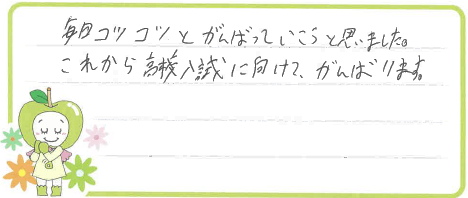 毎日コツコツとがんばっていこうと思いました。
これから高校入試に向けて、がんばります。